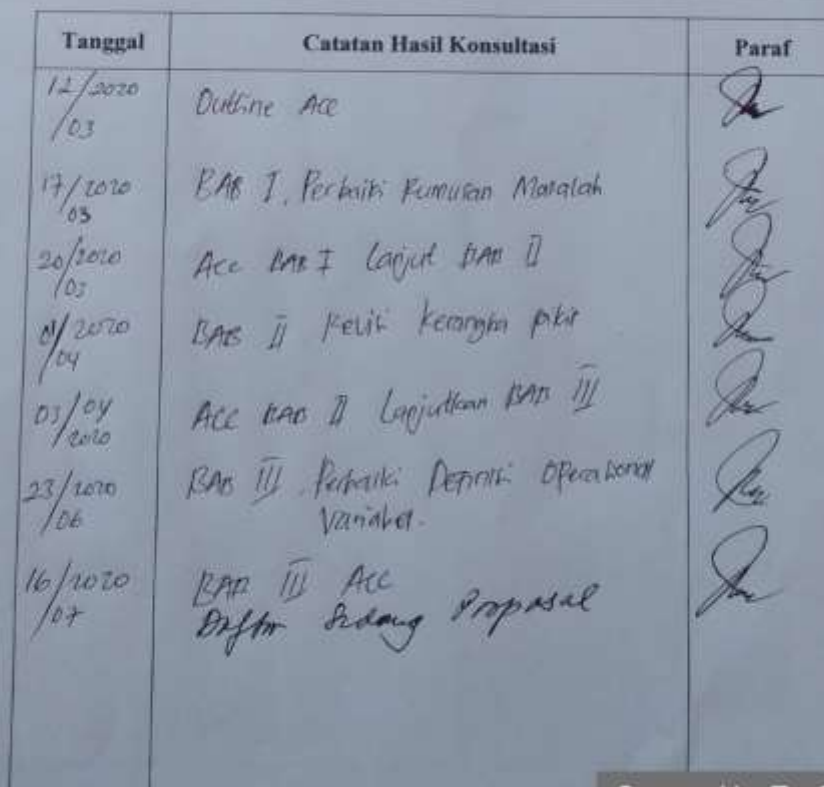 Tanggal Catatan Hasil Konsultasi Paraf
12/2020
/03 Outline Acc
17/2020 BAB I, Perbaiki Rumusan Masalah
03
20/2020 Acc BAB I Lanjut BAB II
/03
01/2020 BAB II Kerangka pikir
/04
03/04 Acc BAB II Lanjutkan BAB III
/2020
23/2020 BAB III, Perbaiki Definisi Operasional
/06 Variabel.
16/2020 BAB III Acc
/07 Daftar Sidang Proposal